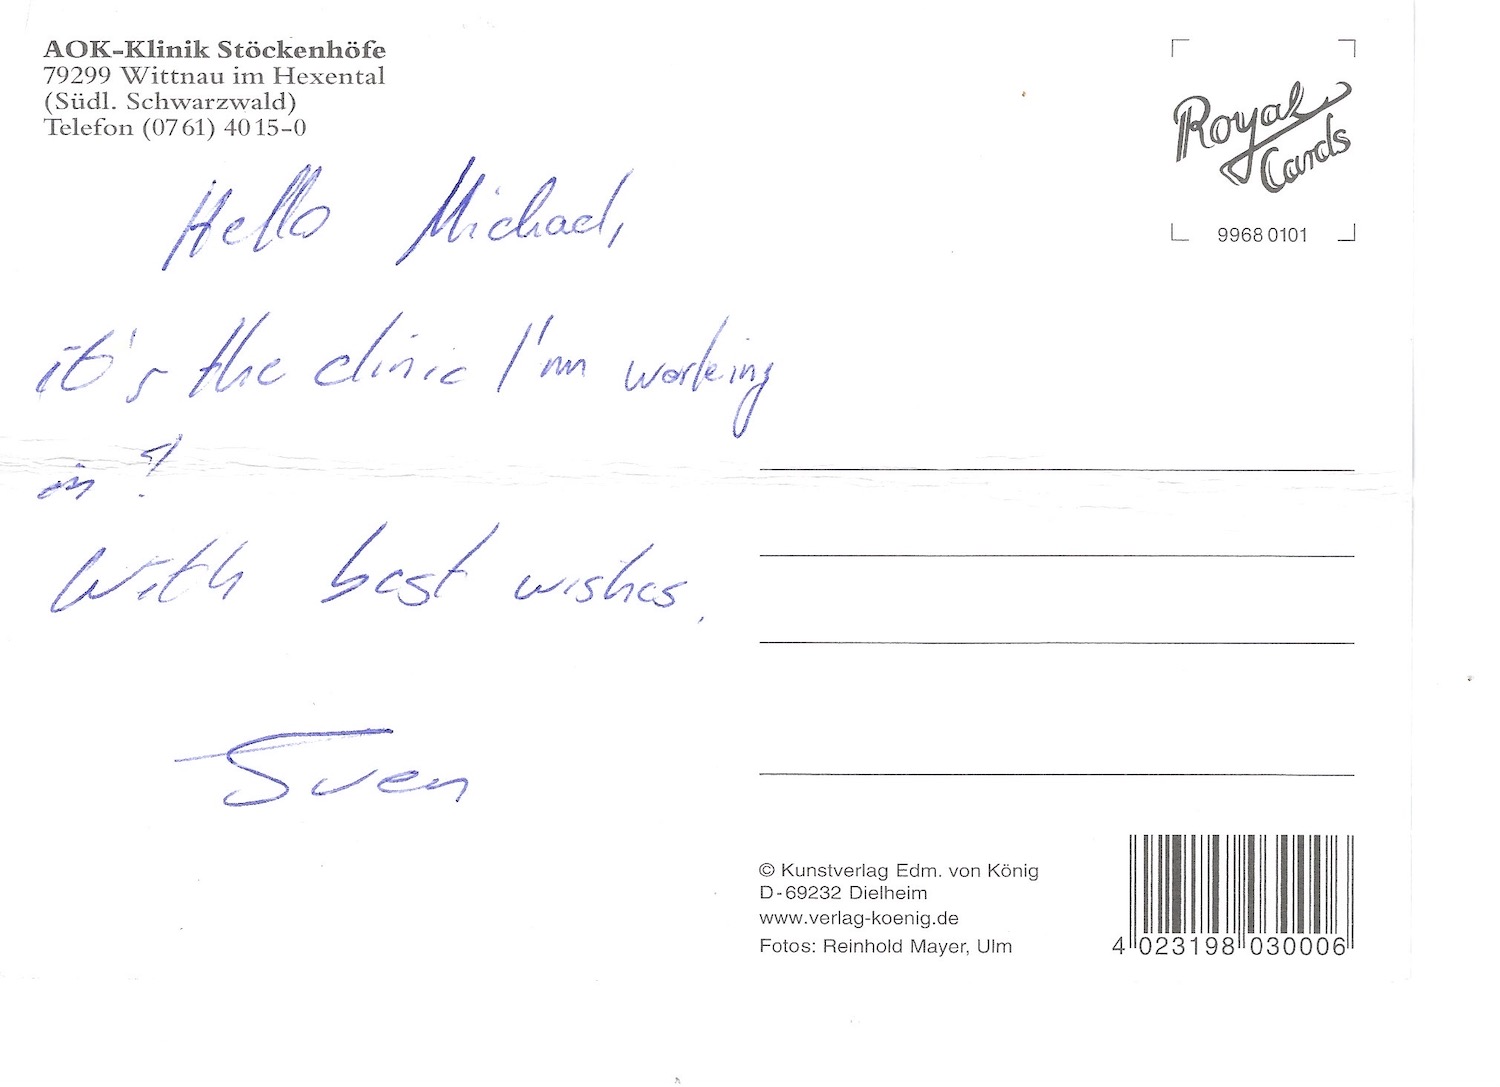 AOK-Klinik Stöckenhöfe
79299 Wittnau im Hexental
(Südl. Schwarzwald)
Telefon (07 61) 40 15-0
Royal
Cards
9968 0101
Hello Michael,
it's the clinic I'm working
in!
With best wishes,
Sven
© Kunstverlag Edm. von König
D-69232 Dielheim
www.verlag-koenig.de
Fotos: Reinhold Mayer, Ulm
4 023198 030006